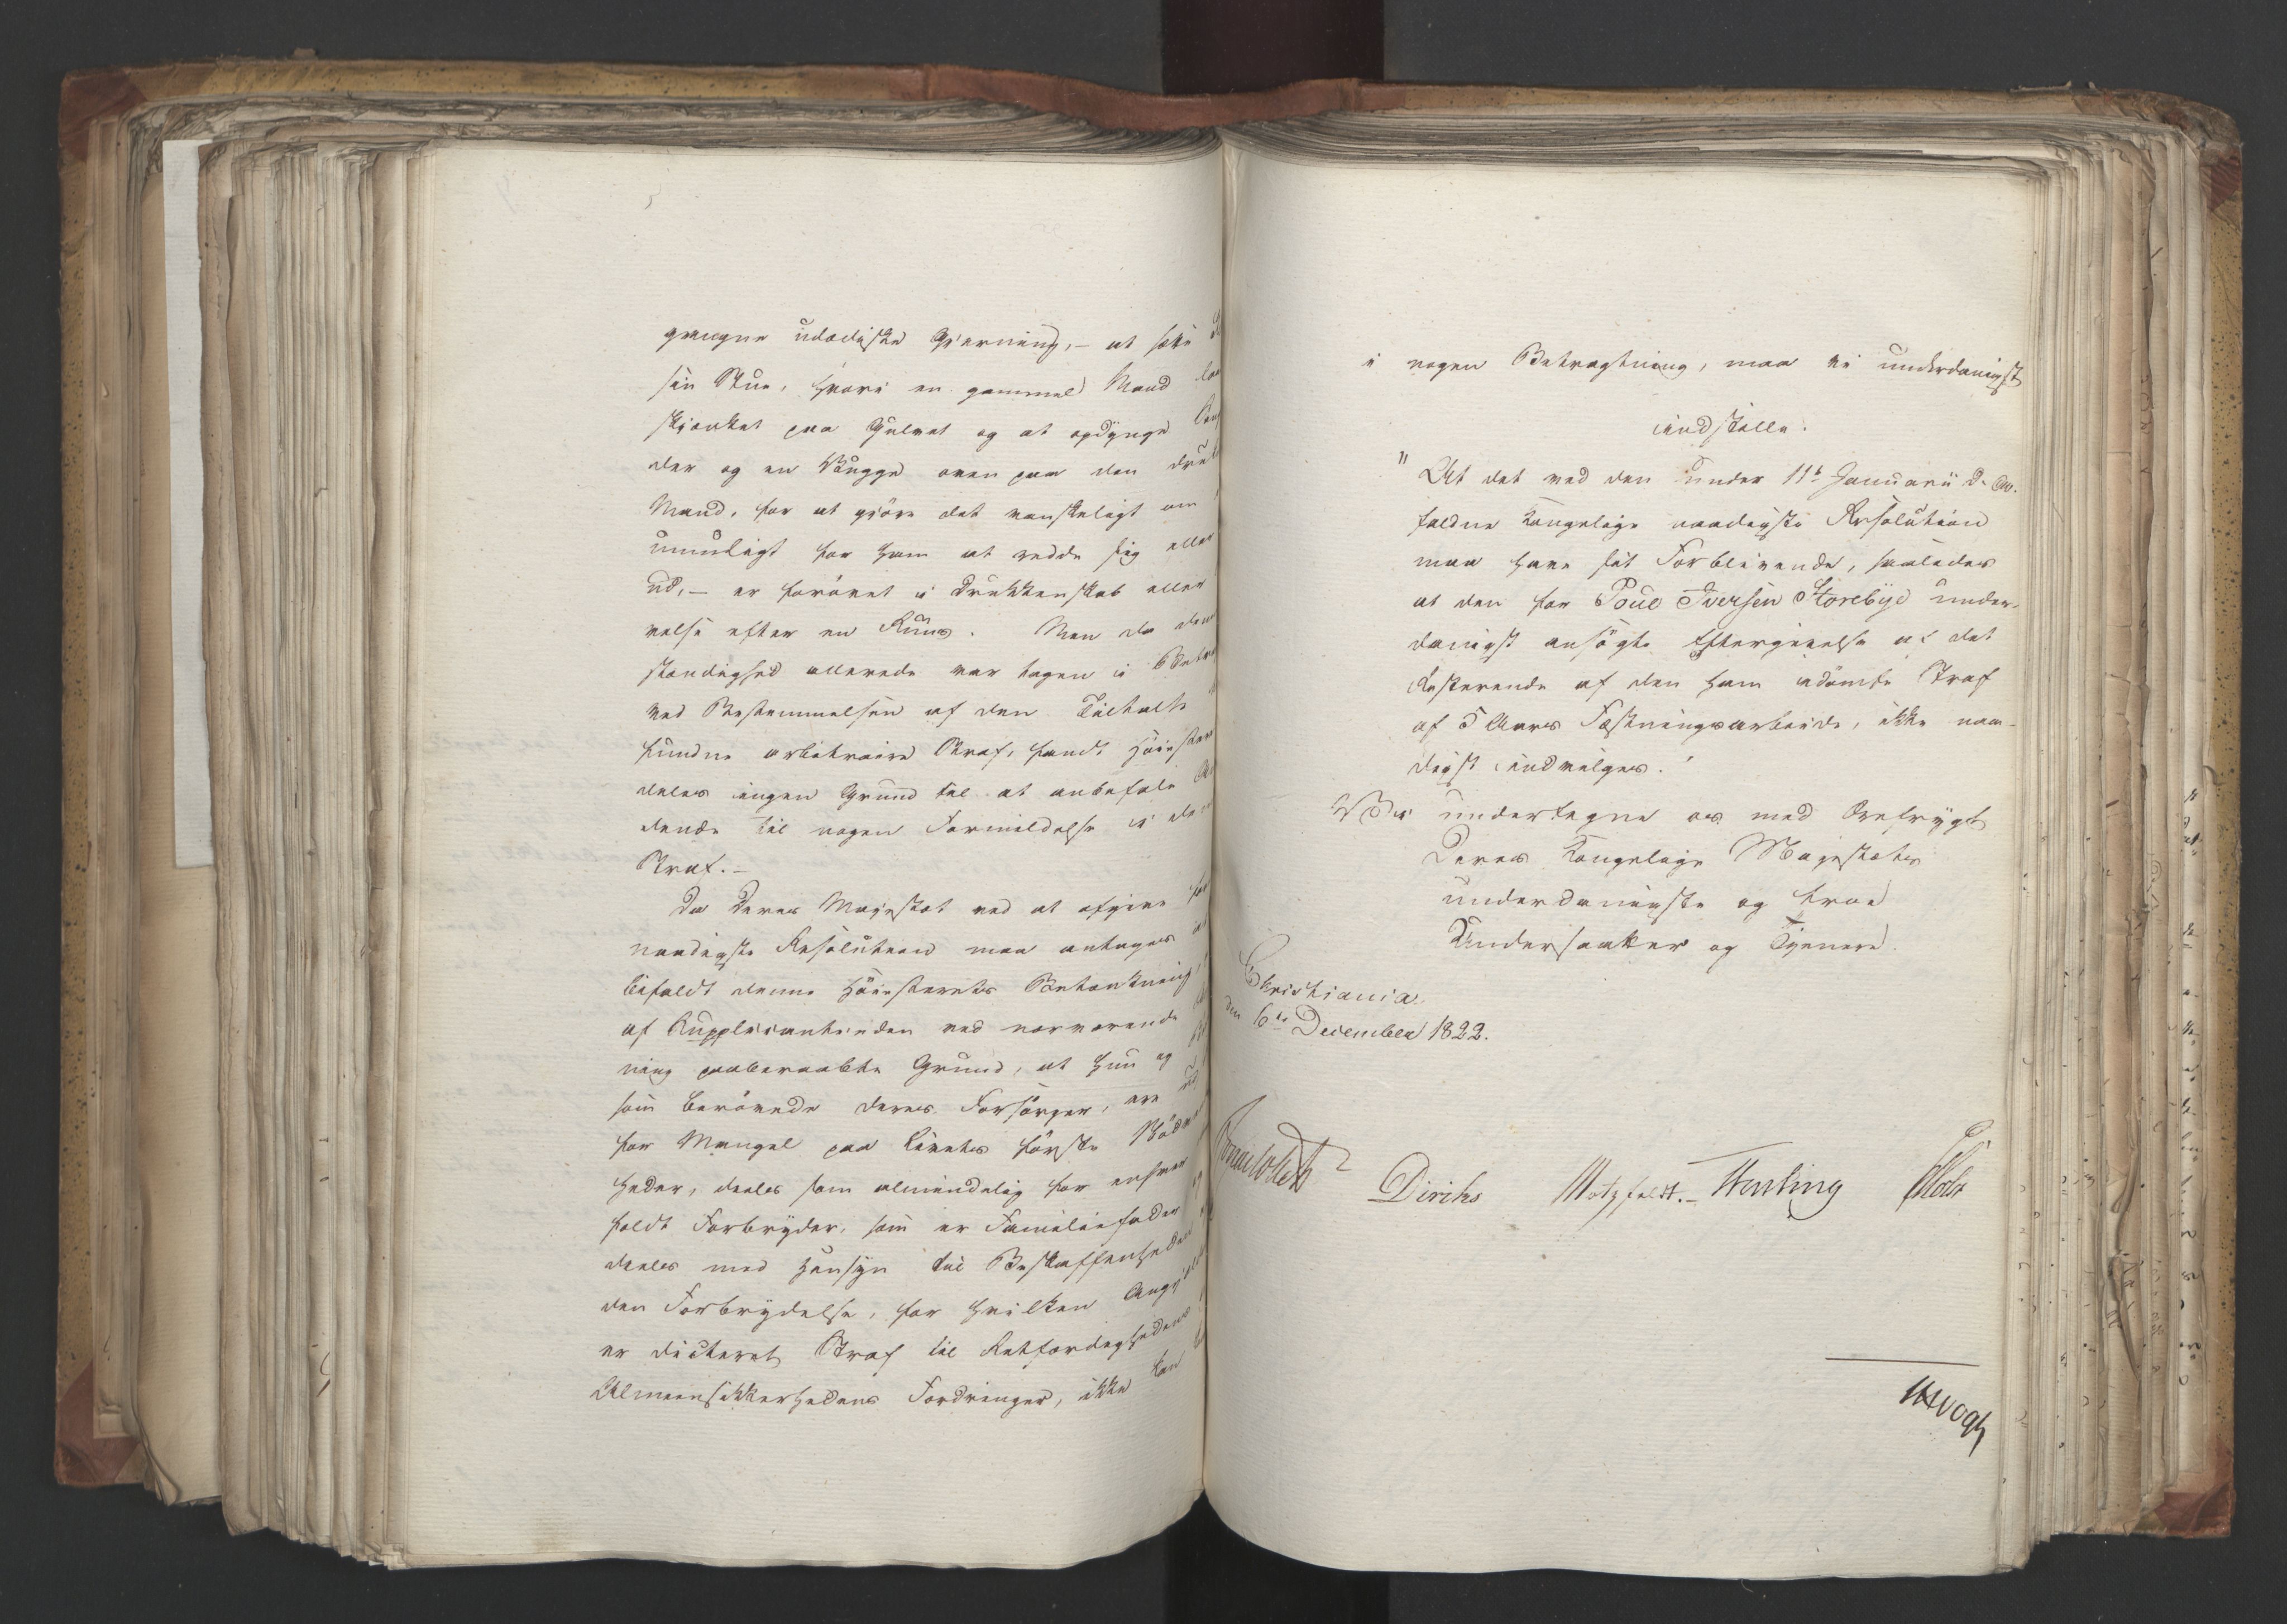 grangne udædiske Gjerning, – at sætte
sin Stue, hvori en gammel Mand laa
skjænket paa Gulvet og at opdynge
der og en Vugge oven paa den druk
Mand, for at gjöre det vanskeligt om
umuligt for ham at redde sig eller
ud, – er forövet i Drukkenskab eller
velse efter en Ruus. Men da denne
stændighed allerede var tagen i Betra
ved Bestemmelsen af den Tiltalte
fundne arbitraire Straf, fandt Höieste
deles ingen Grund til at anbefale
dende til nogen Formildelse i
Straf. –
Da Deres Majestæt ved at afgive
naadigste Resolution maa antages
bifaldt denne Höiesterets Betænkning,
af Supplicantinden ved nærværende
ning paaberaabte Grund, at hun og
som berövede deres Forsörger, ere
for Mangel paa Livets förste Nöd
heder, deels som almindelig for enhver
foldt Forbryder, som er Familiefader
deels med Hensyn til Beskaffenheden
den Forbrydelse, for hvilken Angjel
er dicteret Straf til Retfærdighedens
Almeensikkerhedens Fordringer, ikke kan
i nogen Betragtning, maa vi underdanigst
indstille:
"At det ved den under 11te Januarii d. A.
faldne Kongelige naadigste Resolution
maa have sit Forblivende, saaledes
at den for Poul Iversen Storebye under-
danigst ansögte Eftergivelse af det
Resterende af den ham idömte Straf
af 5 Aars Fæstningsarbeide, ikke naa-
digst indvilges."
Vi undertegne os med Ærefrygt
Deres Kongelige Majestæts
underdanigste og troe
Undersaatter og Tjenere.
Christiania
den 6te December 1822.
Diriks Motzfeldt. – Hersling
JHVogt